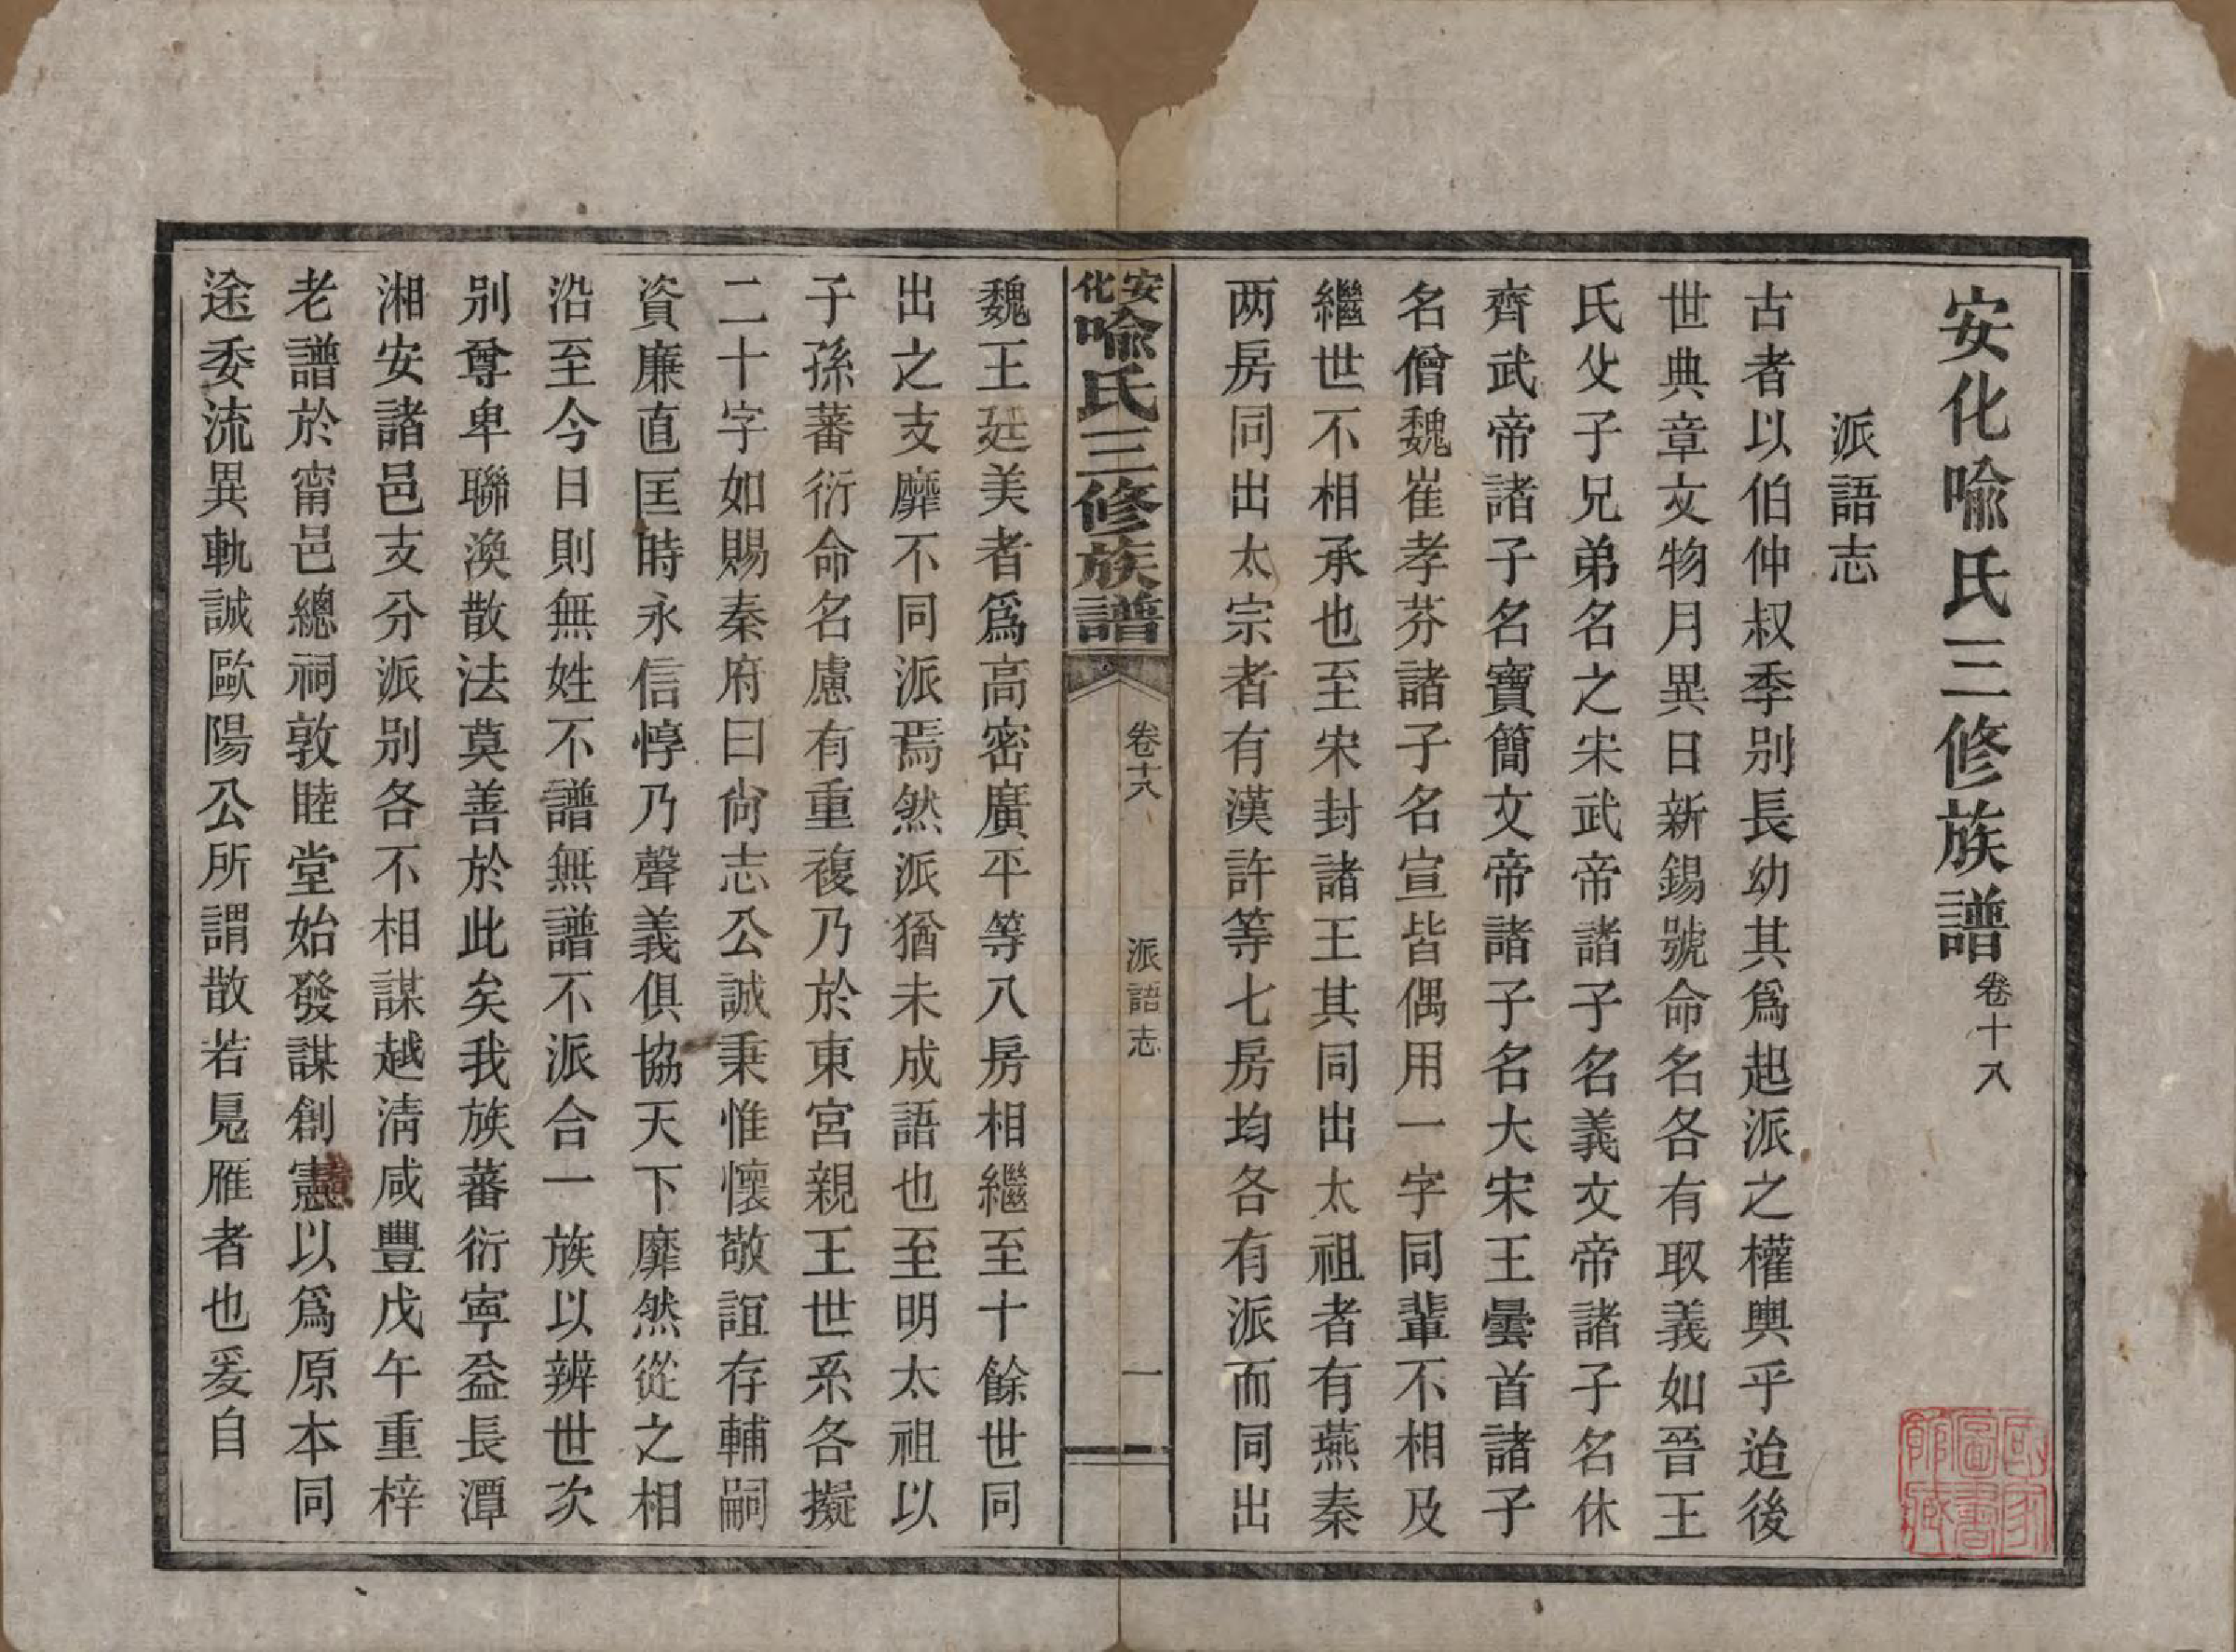 安化喻氏三修族譜卷十八
派語志
古者以伯仲叔季别長幼其爲起派之權輿乎迨後
世典章文物月異日新錫號命名各有取義如晉王
氏父子兄弟名之宋武帝諸子名義文帝諸子名休
齊武帝諸子名寶簡文帝諸子名大宋王曇首諸子
名僧魏崔孝芬諸子名宣皆偶用一字同輩不相及
繼世不相承也至宋封諸王其同出太祖者有燕秦
两房同出太宗者有漢許等七房均各有派而同出
安化喻氏三修族譜
卷十八
派語志
一
魏王廷美者爲高密廣平等八房相繼至十餘世同
出之支靡不同派焉然派猶未成語也至明太祖以
子孫蕃衍命名慮有重複乃於東宮親王世系各擬
二十字如賜秦府曰尙志公誠秉惟懷敬誼存輔嗣
資廉直匡時永信惇乃聲義俱協天下靡然從之相
沿至今日則無姓不譜無譜不派合一族以辨世次
别尊卑聯渙散法莫善於此矣我族蕃衍寧益長潭
湘安諸邑支分派别各不相謀越淸咸豐戊午重梓
老譜於甯邑總祠敦睦堂始發謀創憲以爲原本同
途委流異軌誠歐陽公所謂散若鳧雁者也爰自
國家圖書館藏